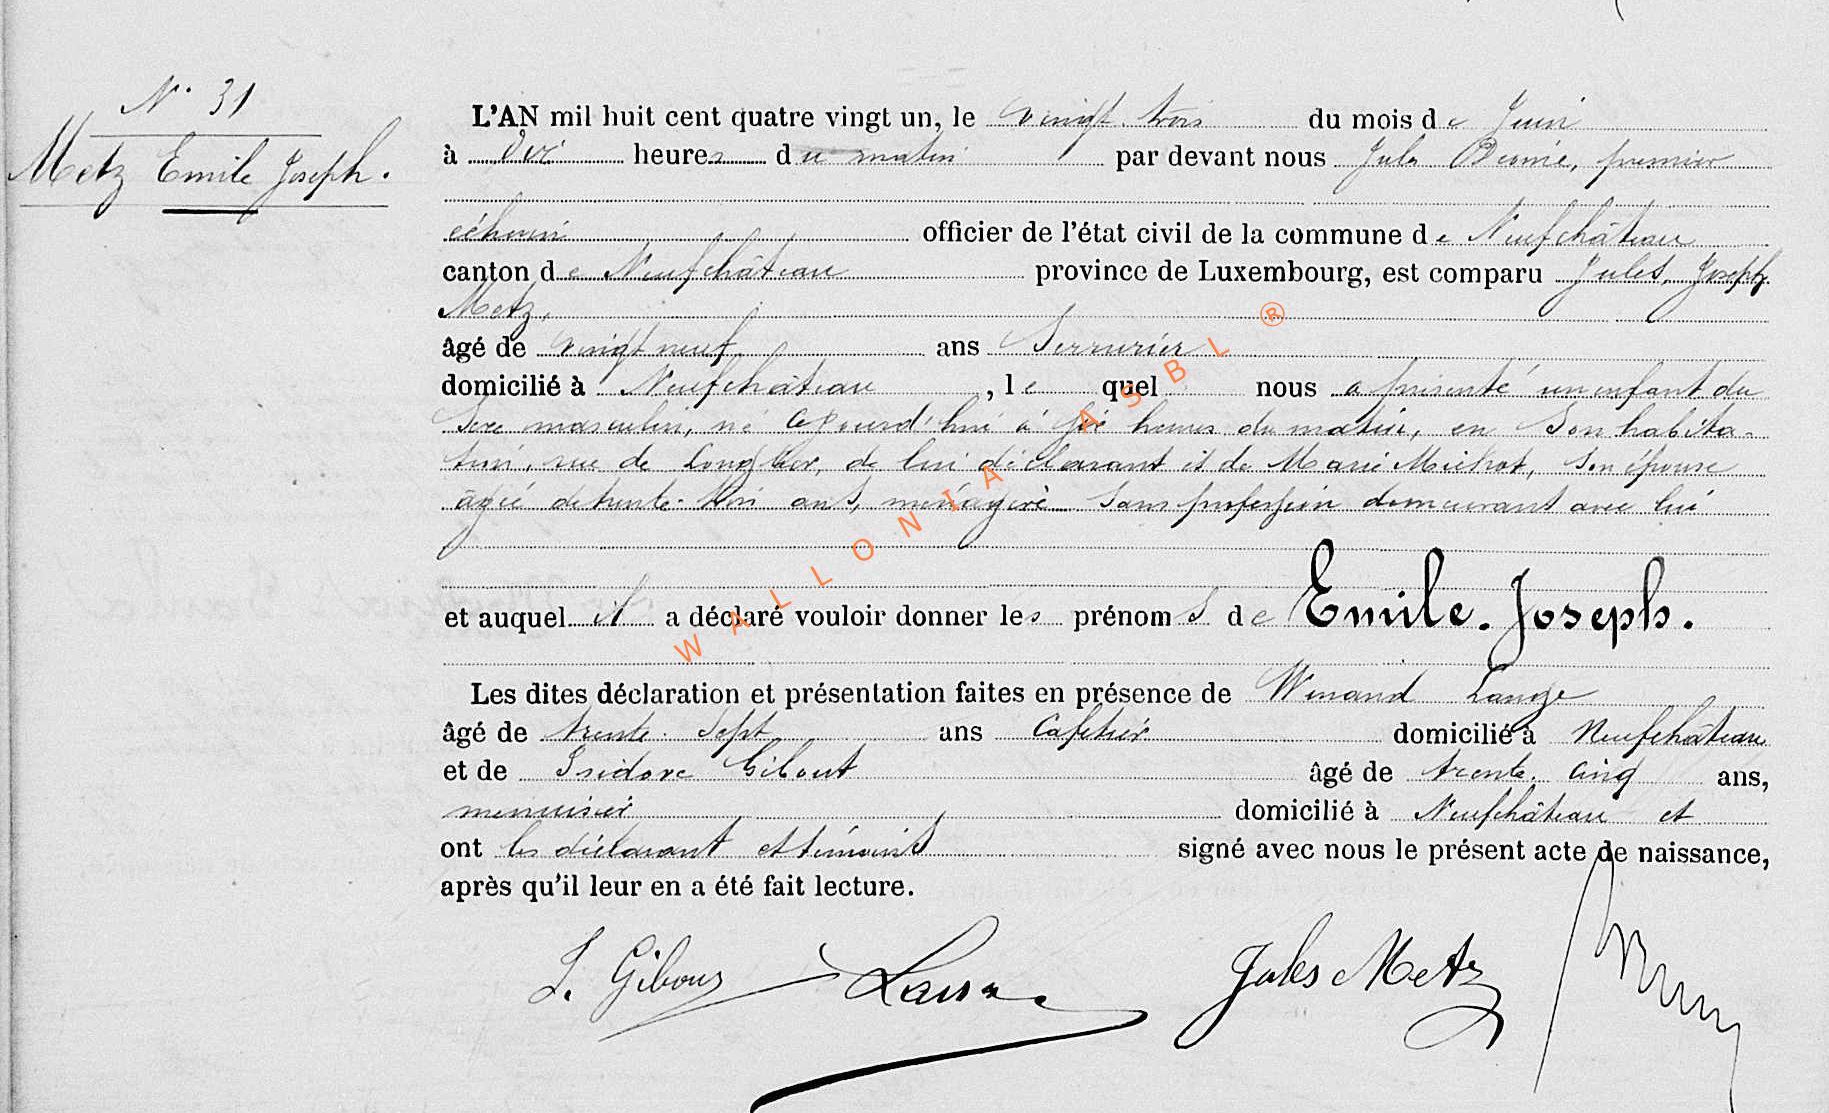 N° 31
Metz Emile Joseph.
L'AN mil huit cent quatre vingt un, le vingt trois du mois de Juin
à dix heures du matin par devant nous Jules premier
échevin officier de l'état civil de la commune de Neufchâteau
canton de Neufchâteau province de Luxembourg, est comparu Jules, Joseph
Metz,
âgé de vingt neuf ans Serrurier
domicilié à Neufchâteau, lequel nous a présenté un enfant du
Sexe masculin, né cejourd'hui à six heures du matin, en Son habita-
tion, rue de Longlier, de lui déclarant et de Marie Michot, Son épouse
âgée de trente-trois ans, ménagère Sans profession demeurant avec lui
et auquel il a déclaré vouloir donner les prénomS de Emile. Joseph.
Les dites déclaration et présentation faites en présence de Winand Lange
âgé de trente-Sept ans Cafetier domicilié à Neufchâteau
et de Isidore Gibout âgé de trente-cinq ans,
menuisier domicilié à Neufchâteau et
ont les déclarant et témoins signé avec nous le présent acte de naissance,
après qu'il leur en a été fait lecture.
Jules Metz
WALLONIA ASBL ®